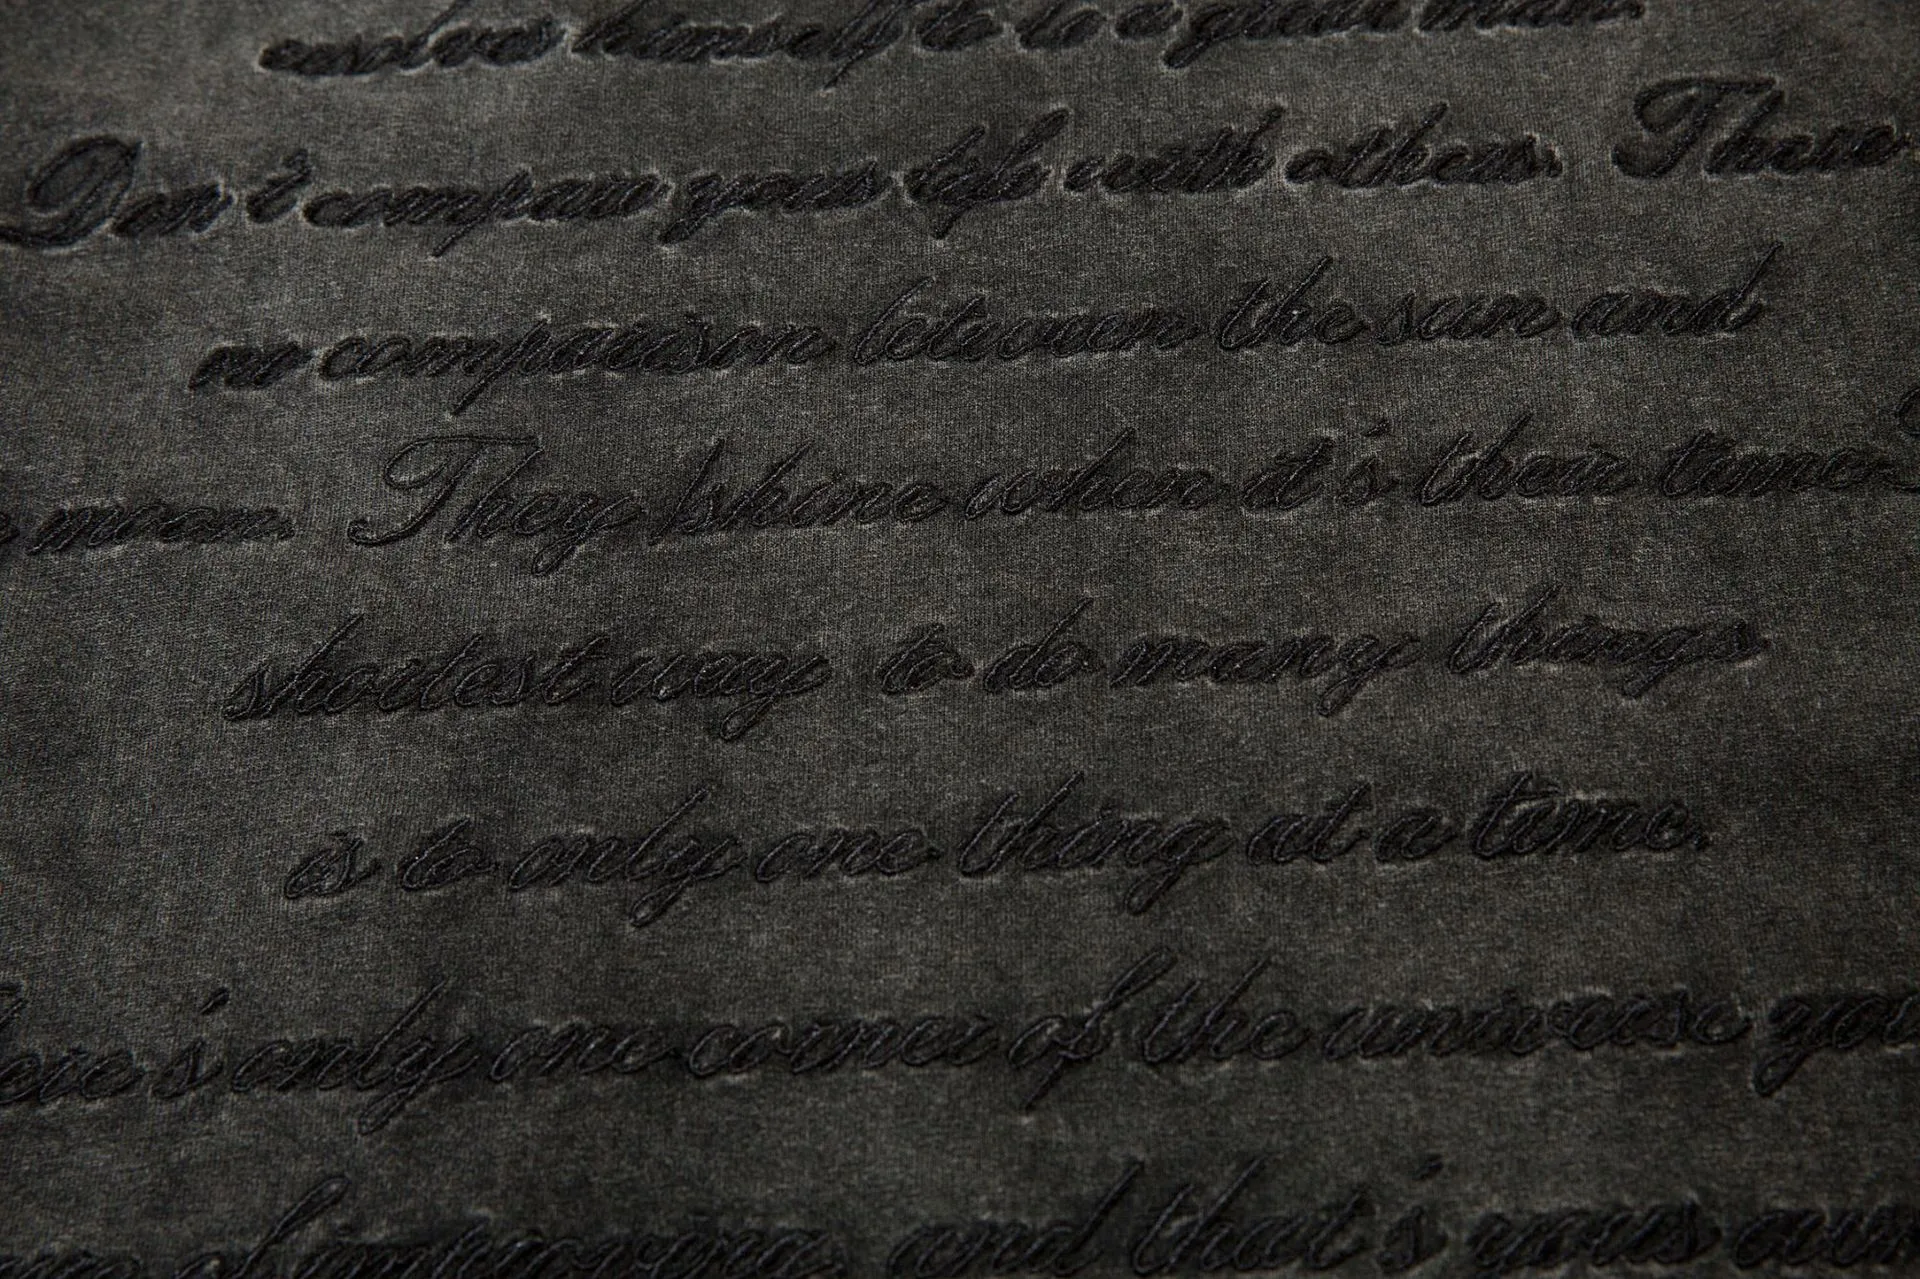 himself to a great man.
Don't compare your life with others. There
no comparison between the sun and
moon. They shine when it's their time.
shortest way to do many things
is to only one thing at a time.
only one corner of the universe you
of improving, and that's your own